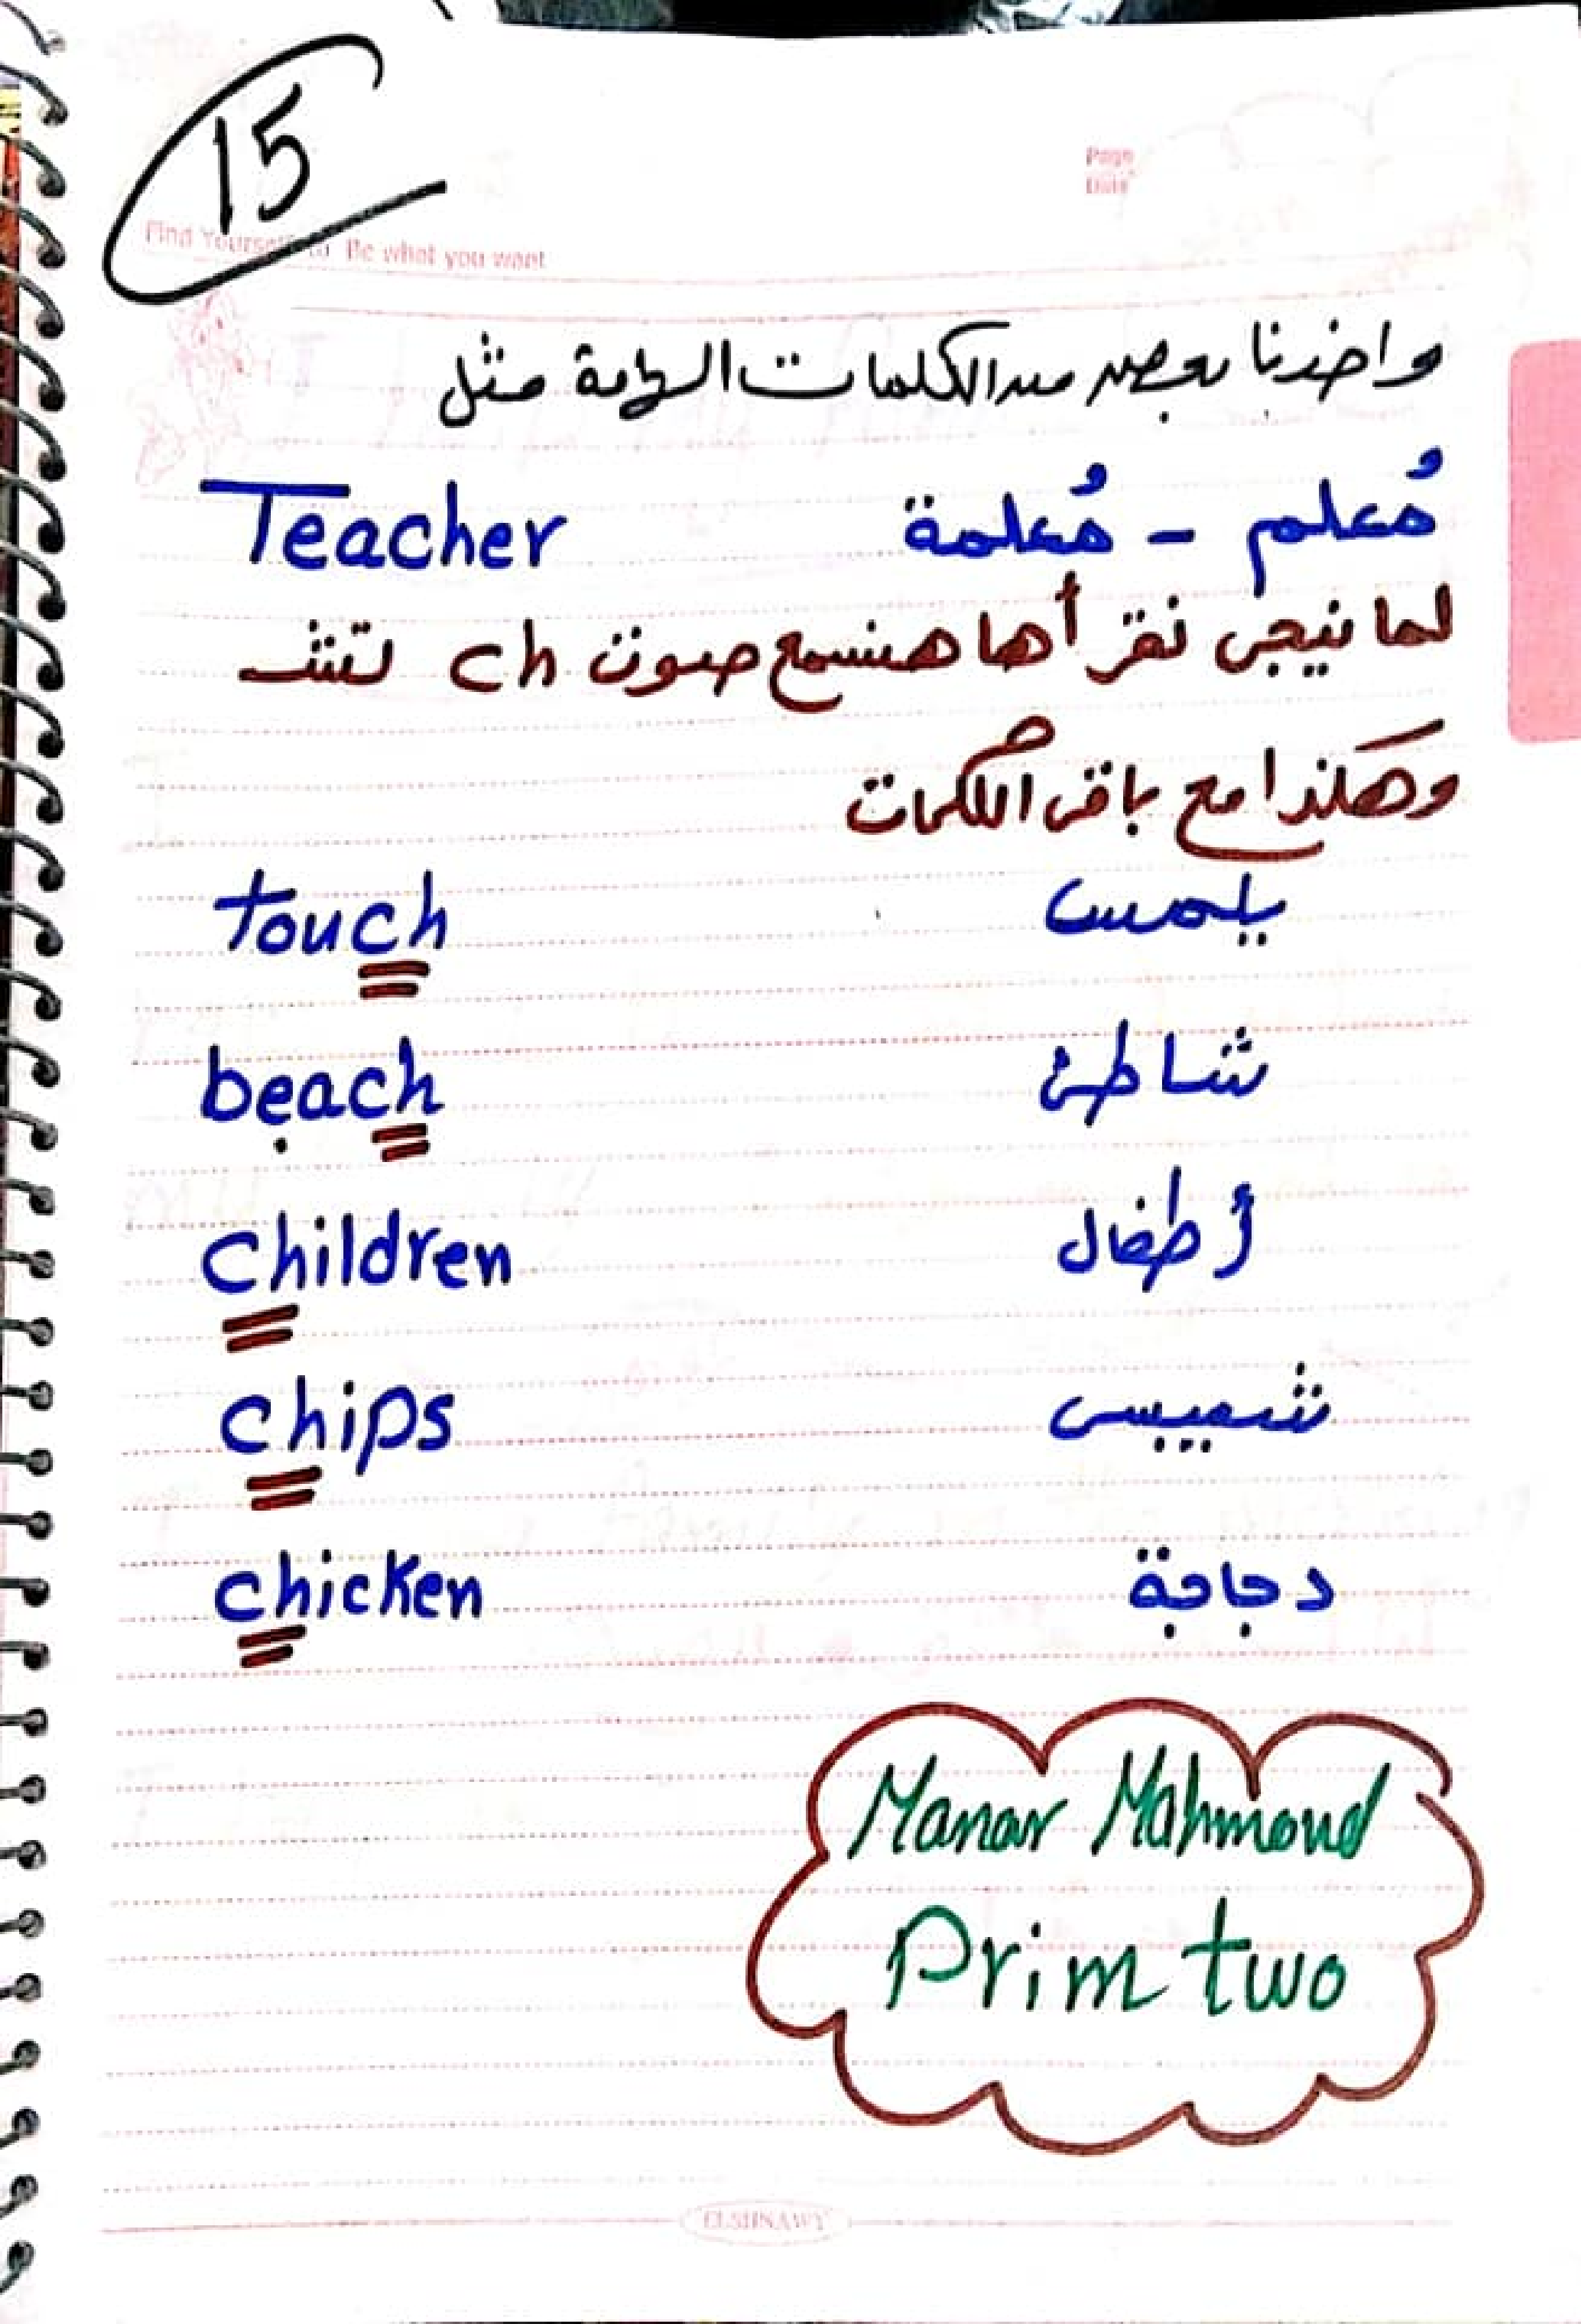 15
Page
Date
Find Yourself to Be what you want
واخدنا بعض من الكلمات الهامة مثل
Teacher مُعلم - مُعلمة
لما نيجى نقرأها هنسمع صوت ch تش
وهكذا مع باقى الكلمات
touch يلمس
beach شاطئ
children أطفال
chips شيبسى
chicken دجاجة
Manar Mahmoud
Prim two
ELSHNAWY